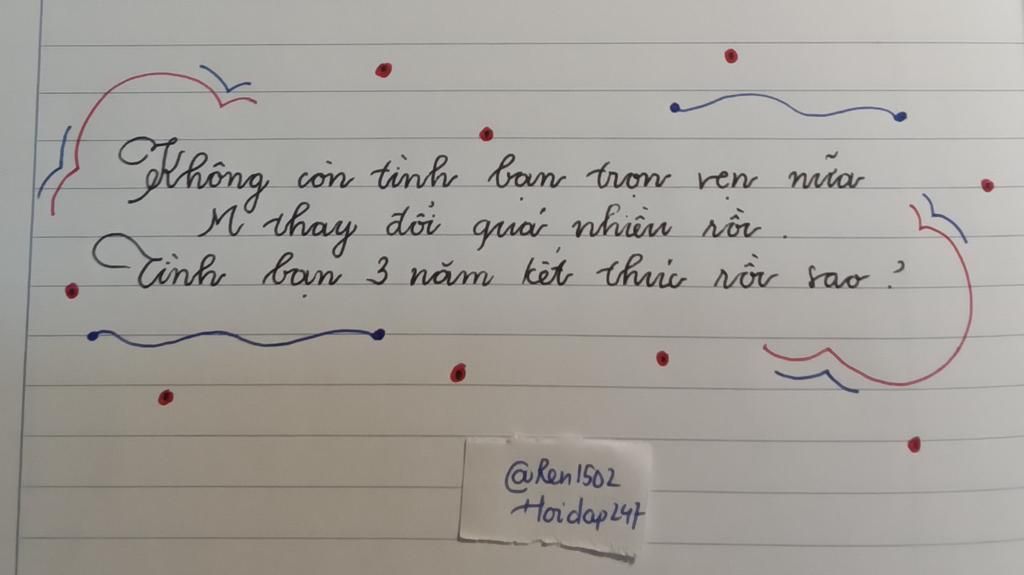 Không còn tình bạn trọn vẹn nữa
M thay đổi quá nhiều rồi.
Tình bạn 3 năm kết thúc rồi sao?
@Ren1502
Hoidap247